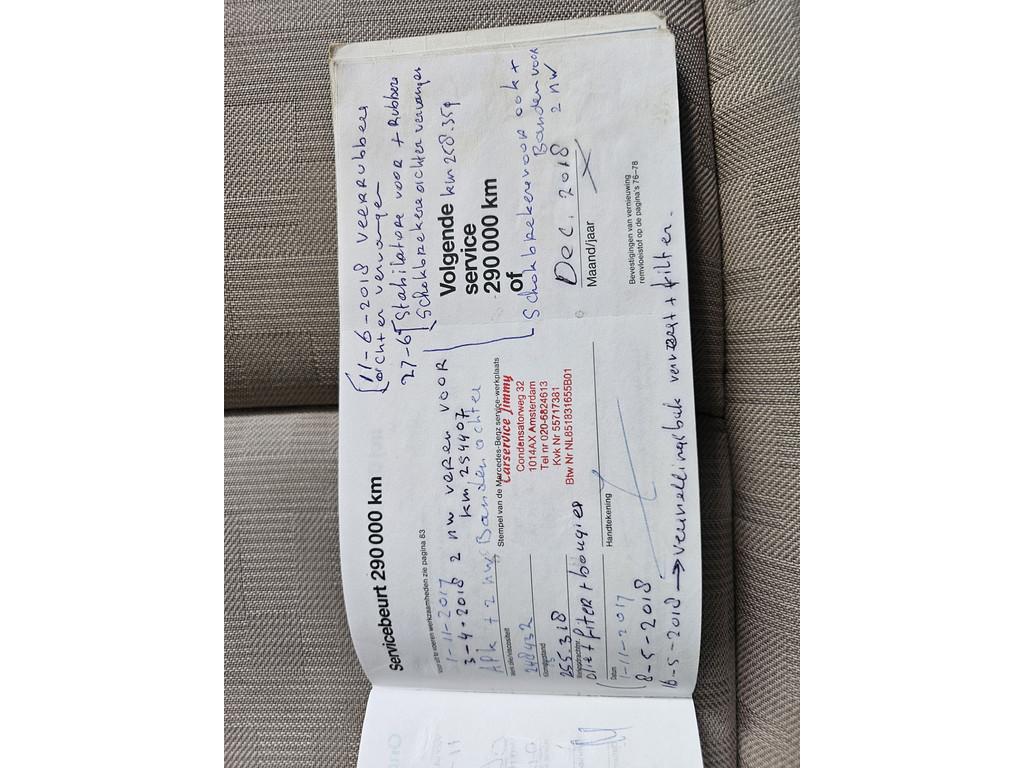 Servicebeurt 290 000 km
Voor uit te voeren werkzaamheden zie pagina 83
1-11-2017
3-4-2018 2 nw veren VOOR
km 254407
APK + 2 nw Banden achter
Merk olie/viscositeit
248432
Kilometerstand
255.318
olie + fiter + bougies
Datum
1-11-2017
8-5-2018
16-5-2018 → versnellingsbak ververst + filter.
Stempel van de Mercedes-Benz service-werkplaats
Carservice Jimmy
Condensatorweg 32
1014AX Amsterdam
Tel nr 020-6824613
Kvk Nr 55717381
Btw Nr NL851831655B01
Handtekening
11-6-2018 VEERRUBBERS
achter vervangen
27-6 Stabilatore voor + Rubbers
Schokbrekers achter vervangen
km 258.359
Volgende
service
290 000 km
of
Schokbrekers voor ook +
Banden voor
2 nw
Dec. 2018
Maand/jaar
Bevestigingen van vernieuwing
remvloeistof op de pagina's 76–78